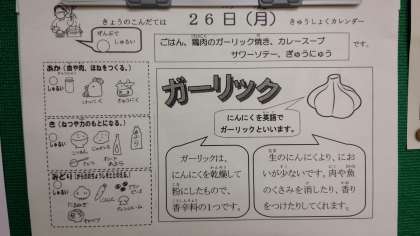 きょうのこんだては
26日(月)
きゅうしょくカレンダー
ぜんぶで
しゅるい
ごはん、鶏肉のガーリック焼き、カレースープ
サワーソテー、ぎゅうにゅう
です。
あか(血や肉、ほねをつくる。)
しゅるい
とりにく
ぎゅうにゅう
き(ねつや力のもとになる。)
しゅるい
ごはん
みどり
しゅるい
キャベツ
ガーリック
にんにくを英語で
ガーリックといいます。
ガーリックは、
にんにくを乾燥して
粉にしたもので、
香辛料の1つです。
生のにんにくより、にお
いが少ないです。肉や魚
のくさみを消したり、香り
をつけたりしてくれます。